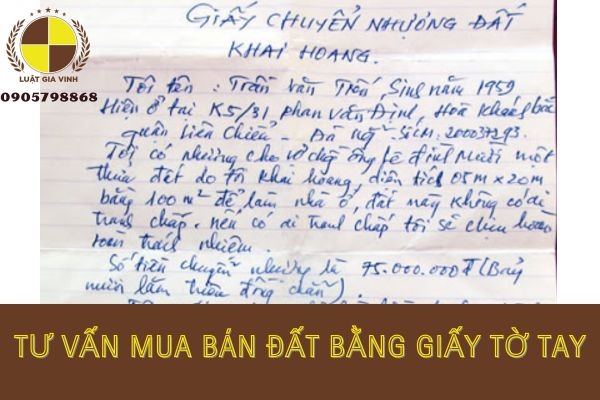 LUẬT GIA VINH
0905798868
GIẤY CHUYỂN NHƯỢNG ĐẤT
KHAI HOANG.
Tôi tên : Trần văn Trốn, Sinh năm 1959
Hiện ở tại K5/31 phan văn Định, Hoà Khánh bắc
quận liên chiểu - Đà nẵng SiCM: 200037293.
Tôi có nhường cho vợ chồng ông lê đình Mười một
thửa đất do tôi khai hoang, diện tích 05m x 20m
bằng 100 m² để làm nhà ở, đất này không có ai
tranh chấp. nếu có ai tranh chấp tôi sẽ chịu hoàn
toàn trách nhiệm.
Số tiền chuyển nhường là 75.000.000đ (Bảy
mười lăm triệu đồng chẵn).
TƯ VẤN MUA BÁN ĐẤT BẰNG GIẤY TỜ TAY